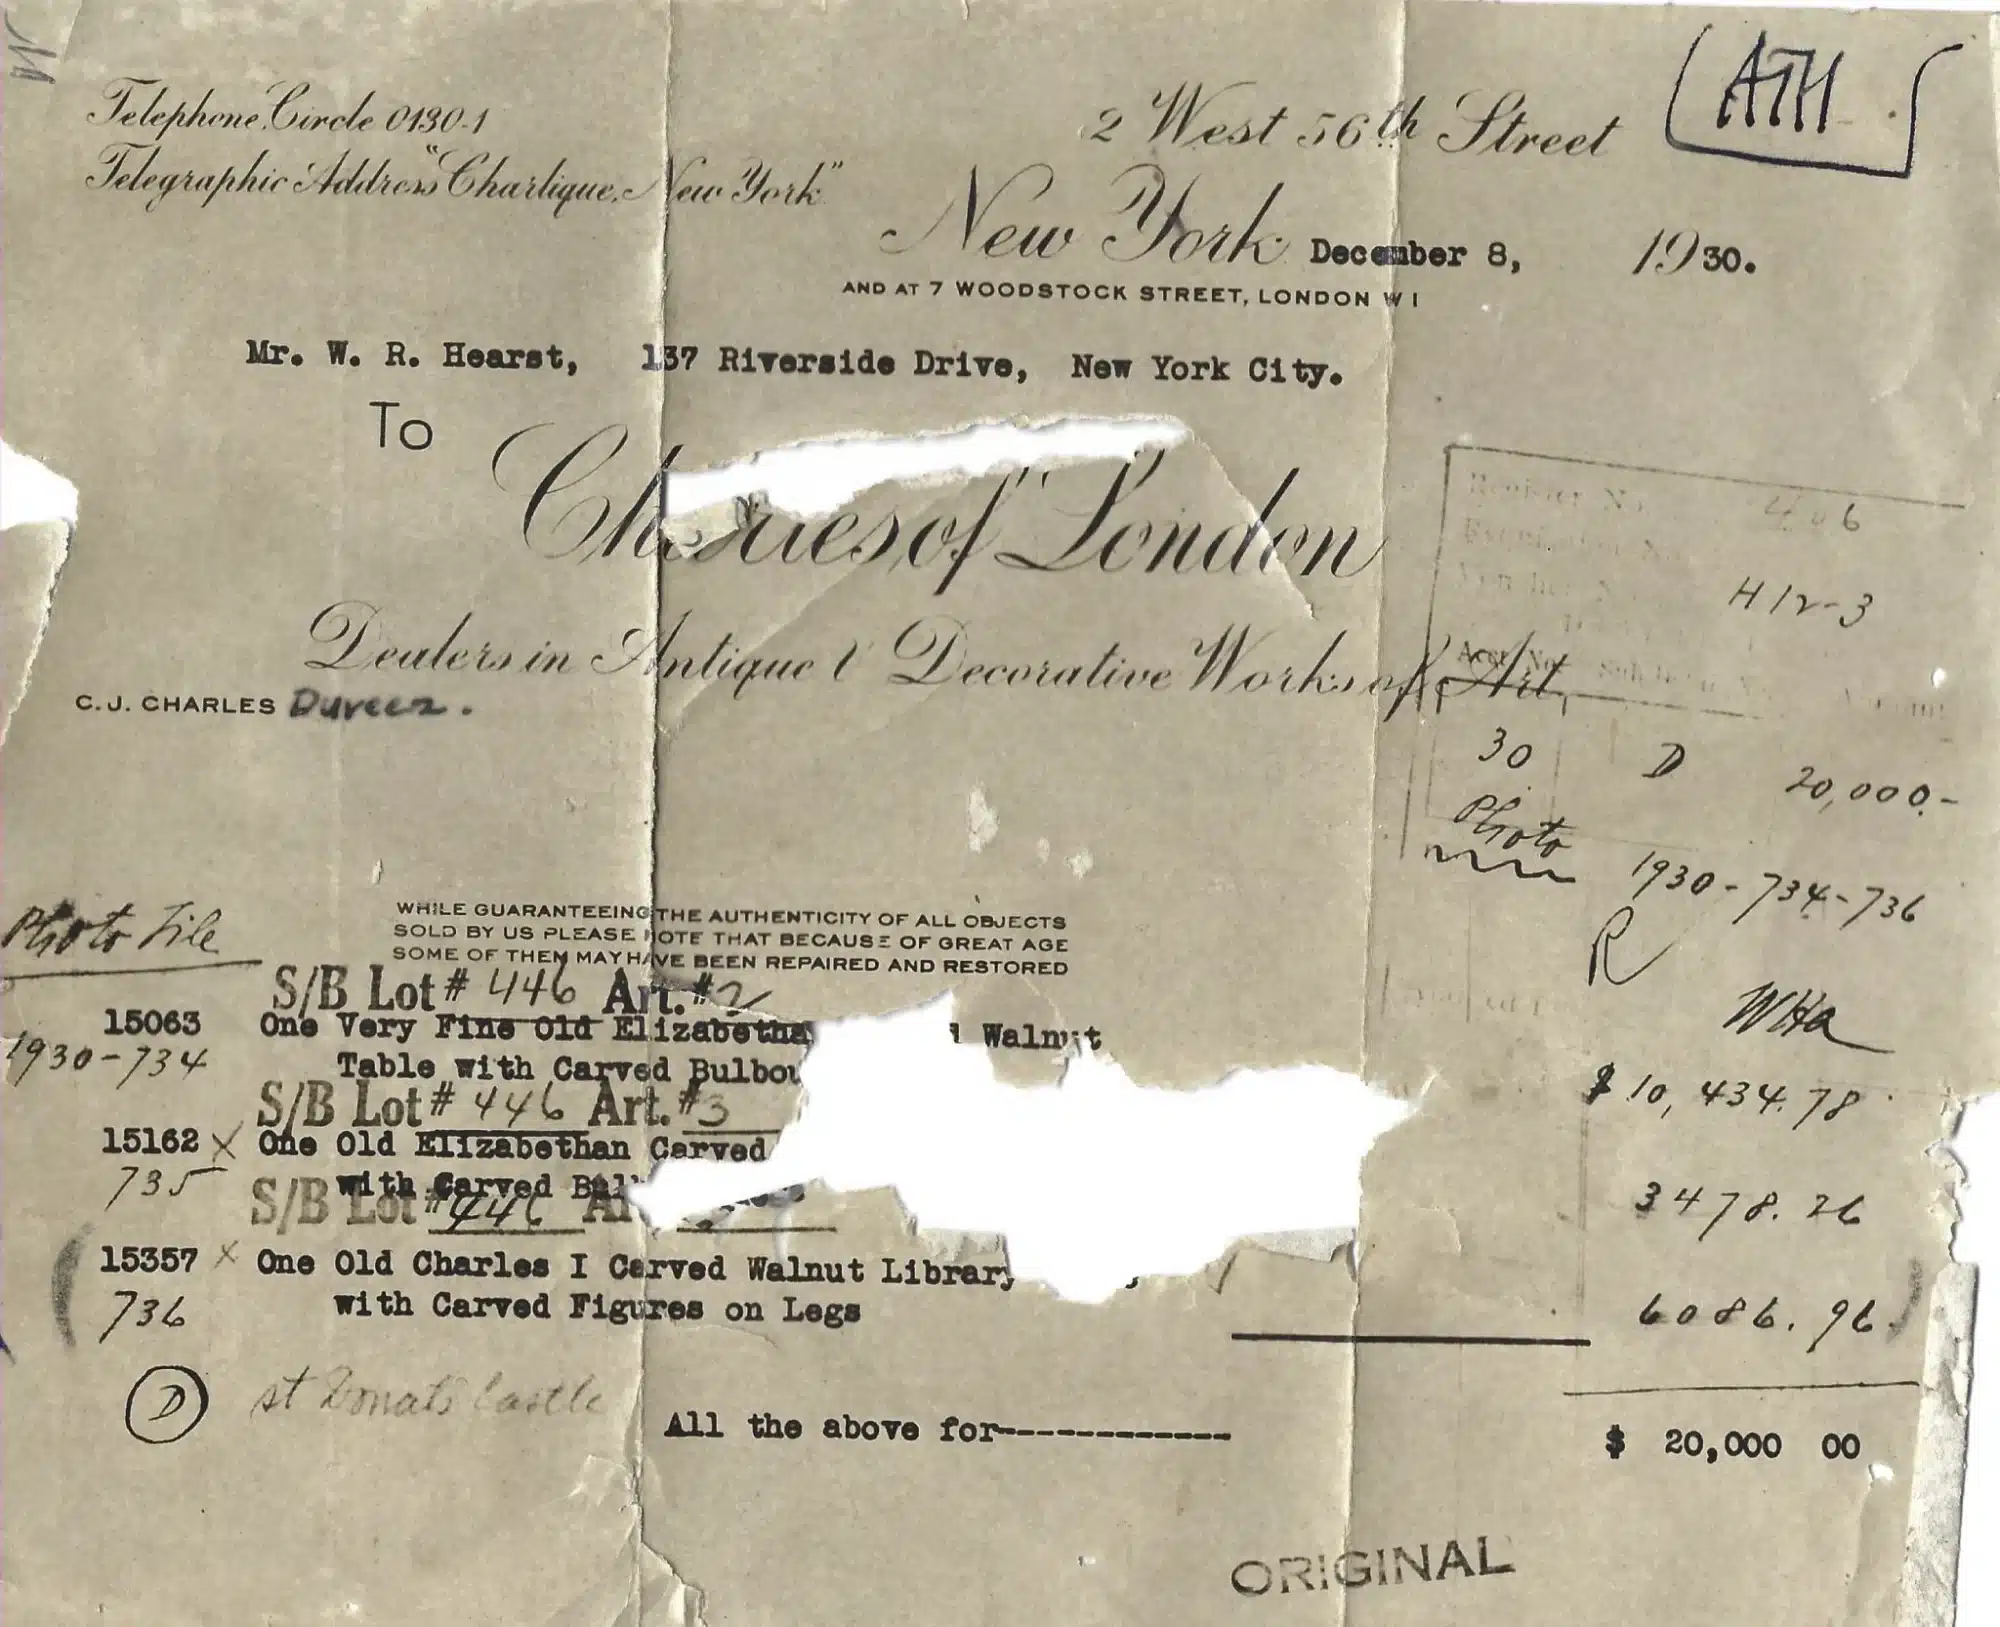 Telephone Circle 0130-1
Telegraphic Address "Charlique, New York"
2 West 56th Street
ATH
New York December 8, 1930.
AND AT 7 WOODSTOCK STREET, LONDON W 1
Mr. W. R. Hearst, 137 Riverside Drive, New York City.
To
Charles of London
Dealers in Antique & Decorative Works of Art
C.J. CHARLES Duveen.
Register No. 406
H12-3
Acct No.
30 D 20,000.-
Photo
1930-734-736
R
WHa
WHILE GUARANTEEING THE AUTHENTICITY OF ALL OBJECTS
SOLD BY US PLEASE NOTE THAT BECAUSE OF GREAT AGE
SOME OF THEM MAY HAVE BEEN REPAIRED AND RESTORED
Photo File
S/B Lot # 446 Art. # 2
15063 One Very Fine Old Elizabetha Walnut
1930-734 Table with Carved Bulbou $ 10,434.78
S/B Lot # 446 Art. # 3
15162 x One Old Elizabethan Carved
735 with Carved 3478.26
S/B Lot # 446
15357 x One Old Charles I Carved Walnut Library
736 with Carved Figures on Legs 6086.96
D St Donat's Castle
All the above for------------ $ 20,000 00
ORIGINAL